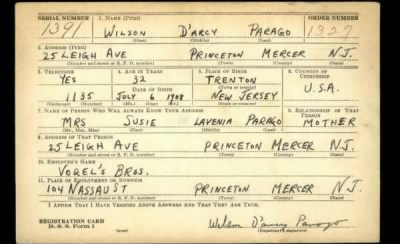 SERIAL NUMBER 1. NAME (Print) ORDER NUMBER
1391 WILSON D'ARCY PARAGO 1327
(First) (Middle) (Last)
2. ADDRESS (Print)
25 LEIGH AVE PRINCETON MERCER N.J.
(Number and street or R. F. D. number) (Town) (County) (State)
3. TELEPHONE 4. AGE IN YEARS 5. PLACE OF BIRTH 6. COUNTRY OF CITIZENSHIP
YES 32 TRENTON
DATE OF BIRTH (Town or county) U.S.A.
1135 JULY 6 1908 NEW JERSEY
(Exchange) (Number) (Mo.) (Day) (Yr.) (State or country)
7. NAME OF PERSON WHO WILL ALWAYS KNOW YOUR ADDRESS 8. RELATIONSHIP OF THAT PERSON
MRS SUSIE LAVENIA PARAGO MOTHER
(Mr., Mrs., Miss) (First) (Middle) (Last)
9. ADDRESS OF THAT PERSON
25 LEIGH AVE PRINCETON MERCER N.J.
(Number and street or R. F. D. number) (Town) (County) (State)
10. EMPLOYER'S NAME
VOGEL'S BROS.
11. PLACE OF EMPLOYMENT OR BUSINESS
104 NASSAU ST PRINCETON MERCER N.J.
(Number and street or R. F. D. number) (Town) (County) (State)
I AFFIRM THAT I HAVE VERIFIED ABOVE ANSWERS AND THAT THEY ARE TRUE.
REGISTRATION CARD
D. S. S. Form 1 Wilson D'arcy Parago
(Registrant's signature)